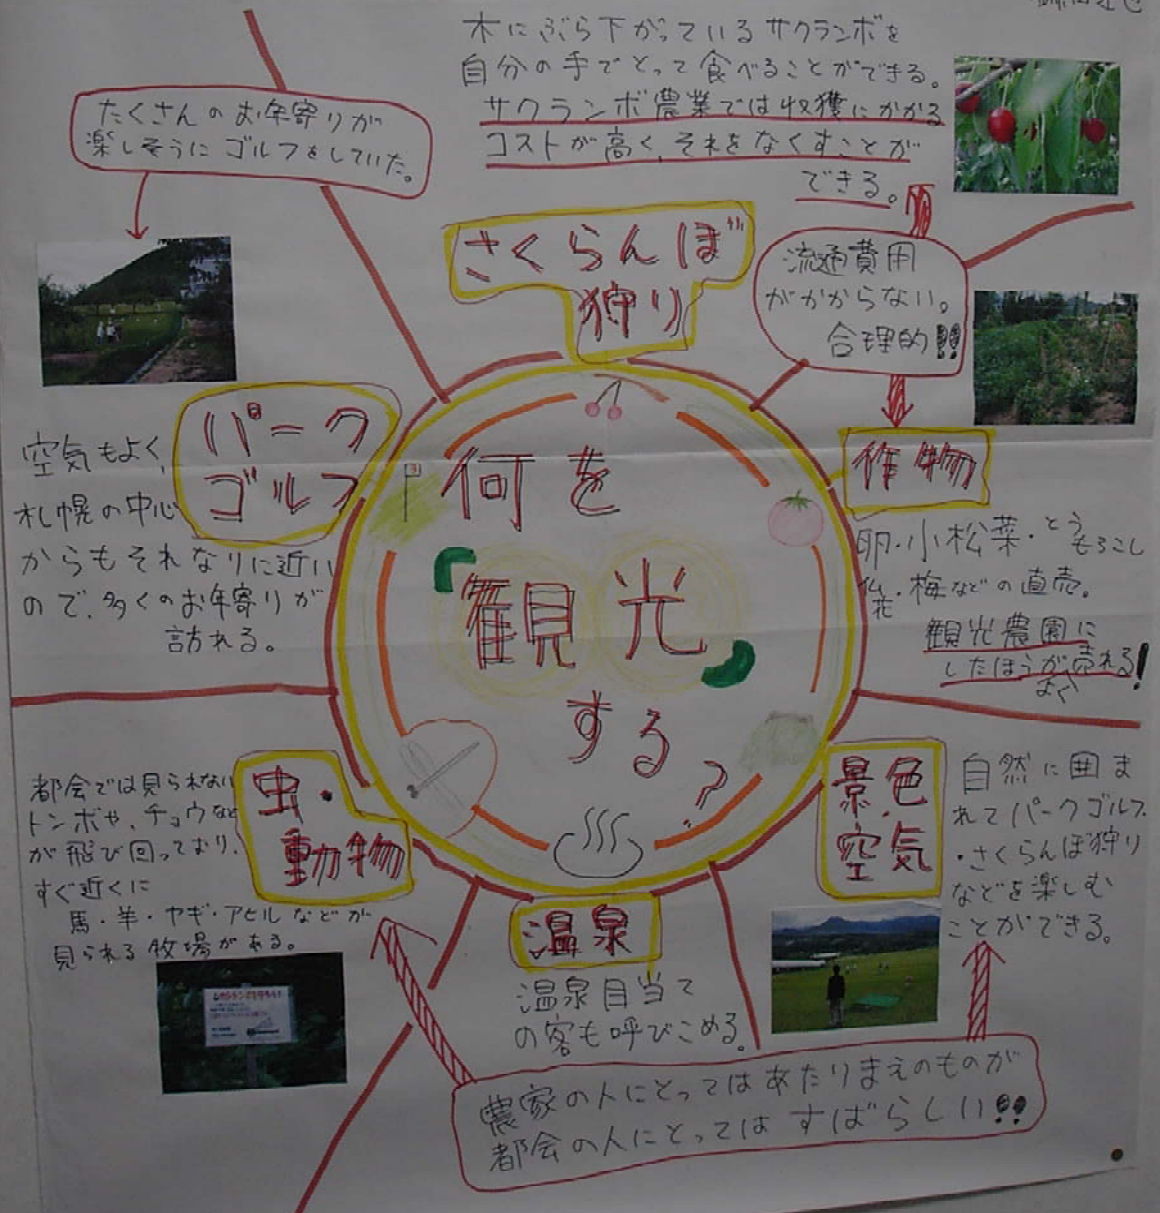 木にぶら下がっているサクランボを
自分の手でとって食べることができる。
サクランボ農業では収獲にかかる
コストが高く、それをなくすことが
できる。
たくさんのお年寄りが
楽しそうにゴルフをしていた。
さくらんぼ
狩り
流通費用
がかからない。
合理的!!
パーク
ゴルフ
空気もよく、
札幌の中心
からもそれなりに近い
ので、多くのお年寄りが
訪れる。
作物
卵・小松菜・とうもろこし
仏花・梅などの直売。
観光農園に
したほうがよく売れる!
何を
「観光」
する?
虫・
動物
都会では見られない
トンボや、チョウなど
が飛び回っており、
すぐ近くに
馬・羊・ヤギ・アヒルなどが
見られる牧場がある。
温泉
温泉目当て
の客も呼びこめる。
景色
空気
自然に囲ま
れてパークゴルフ
・さくらんぼ狩り
などを楽しむ
ことができる。
農家の人にとってはあたりまえのものが
都会の人にとってはすばらしい!!